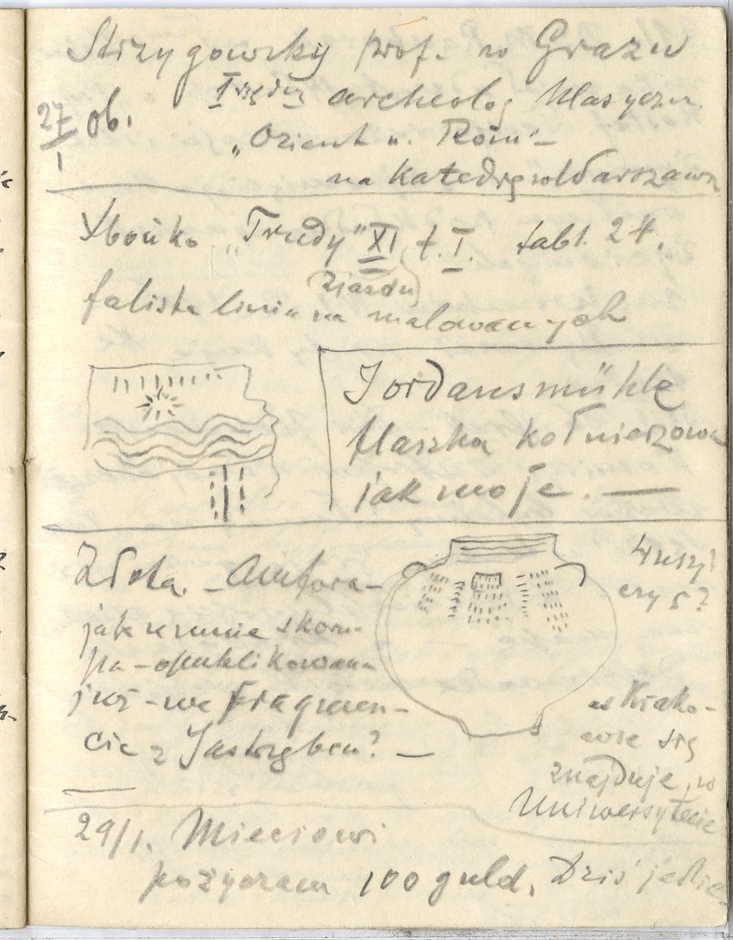 Strzygowsky prof. w Grazu
27/I 06. I rzędny archeolog klasyczn.
„Orient u. Rom" –
na katedrę w Warszawie
Chvoiko „Trudy" XI t. I. tabl. 24.
zjazdu
falista linia na malowanych
Jordansmühle
flaszka kołnierzowa
jak moje. —
Złota. – Amfora –
jak u mnie skoru-
pa – opublikowana
już – we fragmen-
cie z Jastrzębca? –
4 uszy?
czy 5?
w Krako-
wie się
znajduje, w
Uniwersytecie
29/I. Mieciowi
pożyczam 100 guld. Dziś jestem